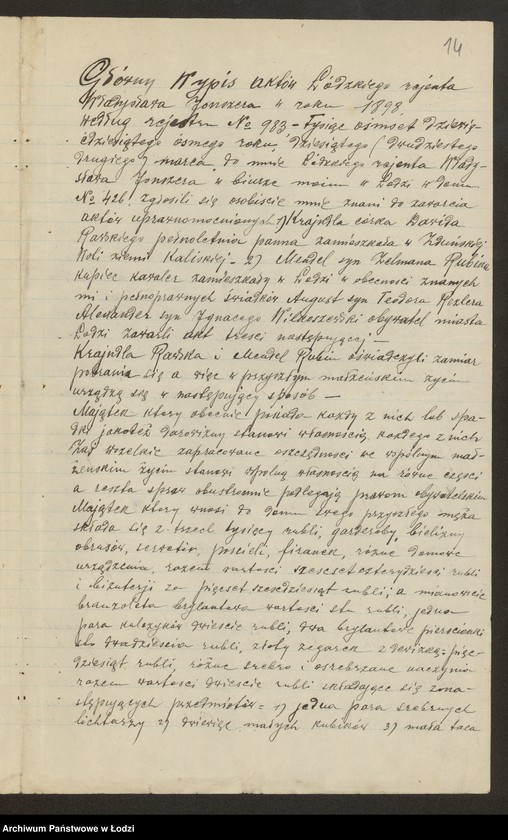 14
Główny Wypis aktów Łódzkiego rejenta
Władysława Jonszera w roku 1898
według rejestru № 983 – Tysiąc osmset dziewię-
ćdziesiątego osmego roku, dziesiątego (dwudziestego
drugiego) marca, do mnie Łódzkiego rejenta Włady-
sława Jonszera w biurze moim w Łodzi w domu
№ 426 zgłosili się osobiście mnie znani do zawarcia
aktów uprawnomocnionych 1) Krajndla córka Dawida
Rawskiego pełnoletnia panna zamieszkała w Zduńskiej
Woli ziemi Kaliskiej – 2) Mendel syn Zelmana Rubin
kupiec kawaler zamieszkały w Łodzi w obecności znanych
mi i pełnoprawnych świadków August syn Teodora
Alexander syn Ignacego Wilkoszewski obywatel miasta
Łodzi zawarli akt treści następującej –
Krajndla Rawska i Mendel Rubin oświadczyli zamiar
pobrania się a więc w przyszłym małżeńskim życiu
urządzą się w następujący sposób –
Majątek który obecnie posiada każdy z nich lub spa-
dki jakoteż darowizny stanowi własnością każdego z nich
Zaś wszelkie zapracowane oszczędności we wspólnym mał-
żeńskim życiu stanowi wspólną własnością na równe części
a reszta spraw obustronnie podlegają prawom obywatelskim
Majątek który wnosi do domu swego przyszłego męża
składa się z trzech tysięcy rubli, garderoby, bielizny
obrusów, serwetów, pościeli, firanek, różne domowe
urządzenia, razem wartości szescset czterydzieści rubli
i biżuterji za pięcset szesdziesiąt rubli; a mianowicie
branzoleta brylantowa wartości sto rubli, jedna
para kulczyków dwieście rubli, dwa brylantowe pierscionki
sto dwadzieścia rubli, złoty zegarek z dewizką pięć-
dziesiąt rubli, różne srebro i osrebrzane naczynia
razem wartości dwieście rubli składające się z na-
stępujących przedmiotów = 1) jedna para srebrnych
lichtarzy 2) dziewięć małych kubików 3) mała taca
Archiwum Państwowe w Łodzi